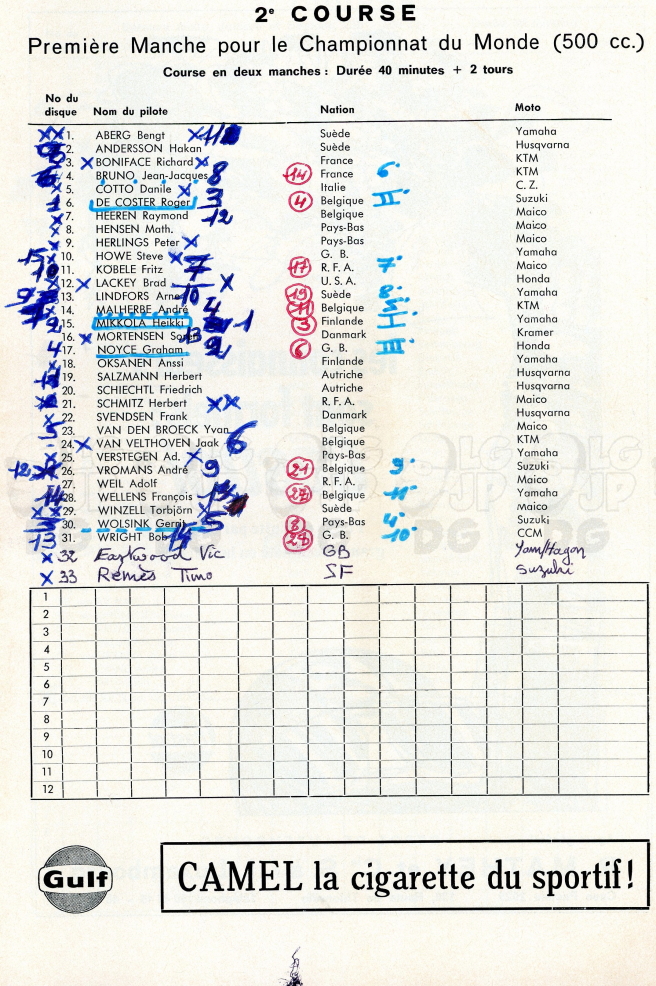 2e COURSE
Première Manche pour le Championnat du Monde (500 cc.)
Course en deux manches : Durée 40 minutes + 2 tours
No du disque Nom du pilote Nation Moto
1. ABERG Bengt Suède Yamaha
2. ANDERSSON Hakan Suède Husqvarna
3. BONIFACE Richard France KTM
4. BRUNO Jean-Jacques 8 14 France 6 KTM
5. COTTO Danile Italie C. Z.
6. DE COSTER Roger 3 4 Belgique II Suzuki
7. HEEREN Raymond 12 Belgique Maico
8. HENSEN Math. Pays-Bas Maico
9. HERLINGS Peter Pays-Bas Maico
10. HOWE Steve G. B. Yamaha
11. KOBELE Fritz 7 17 R. F. A. 7 Maico
12. LACKEY Brad U.S.A. Honda
13. LINDFORS Arne 10 19 Suède 8 Yamaha
14. MALHERBE André 4 11 Belgique 5 KTM
15. MIKKOLA Heikki 1 3 Finlande I Yamaha
16. MORTENSEN Soren 13 Danmark Kramer
17. NOYCE Graham 2 6 G. B. III Honda
18. OKSANEN Anssi Finlande Yamaha
19. SALZMANN Herbert Autriche Husqvarna
20. SCHIECHTL Friedrich Autriche Husqvarna
21. SCHMITZ Herbert R. F. A. Maico
22. SVENDSEN Frank Danmark Husqvarna
23. VAN DEN BROECK Yvan Belgique Maico
24. VAN VELTHOVEN Jaak 6 Belgique KTM
25. VERSTEGEN Ad. Pays-Bas Yamaha
26. VROMANS André 9 21 Belgique 9 Suzuki
27. WEIL Adolf R. F. A. Maico
28. WELLENS François 27 Belgique 11 Yamaha
29. WINZELL Torbjörn Suède Maico
30. WOLSINK Gerrit 5 8 Pays-Bas 4 Suzuki
31. WRIGHT Bob 14 28 G. B. 10 CCM
32 Eastwood Vic GB Yam/Hagon
33 Remes Timo SF Suzuki
1
2
3
4
5
6
7
8
9
10
11
12
Gulf
CAMEL la cigarette du sportif!